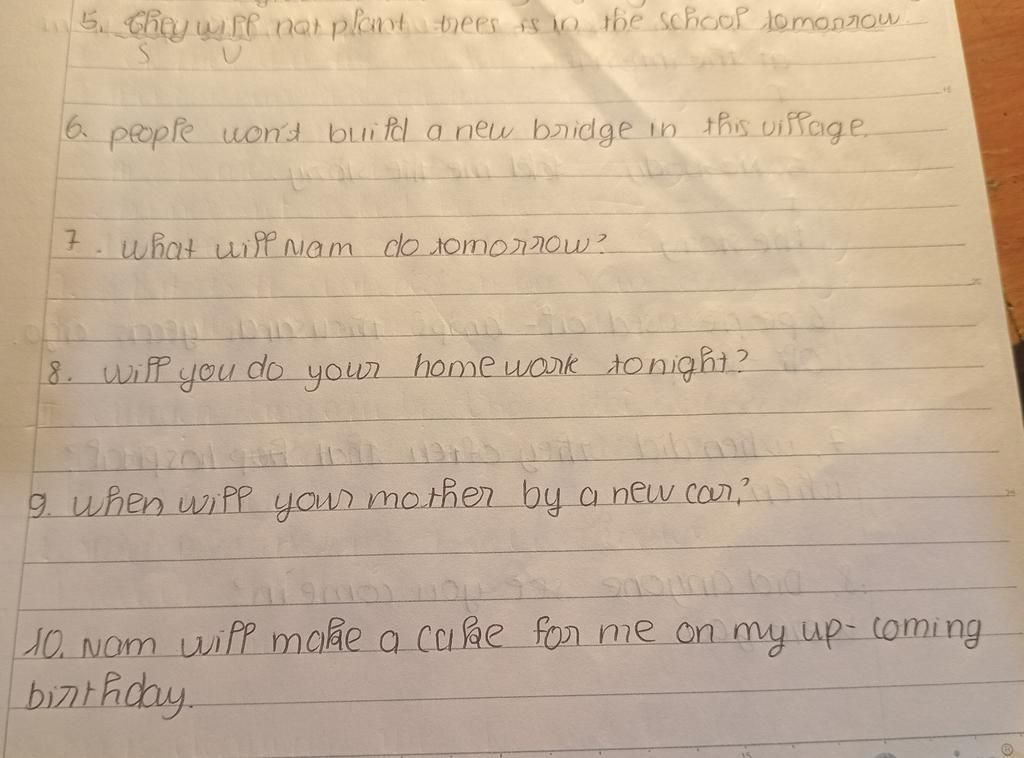 5. they will not plant trees is in the school tomorrow.
S V
6. people won't build a new bridge in this village.
7. what will Nam do tomorrow?
8. will you do your homework tonight?
9. when will your mother by a new car?
10. Nam will make a cake for me on my up-coming
birthday.